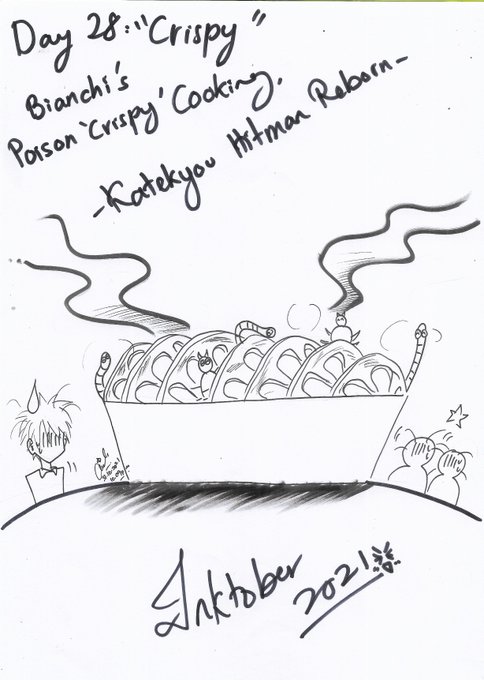 Day 28: "Crispy"
Bianchi's
Poison 'Crispy' Cooking.
-Katekyou Hitman Reborn-
Inktober
2021